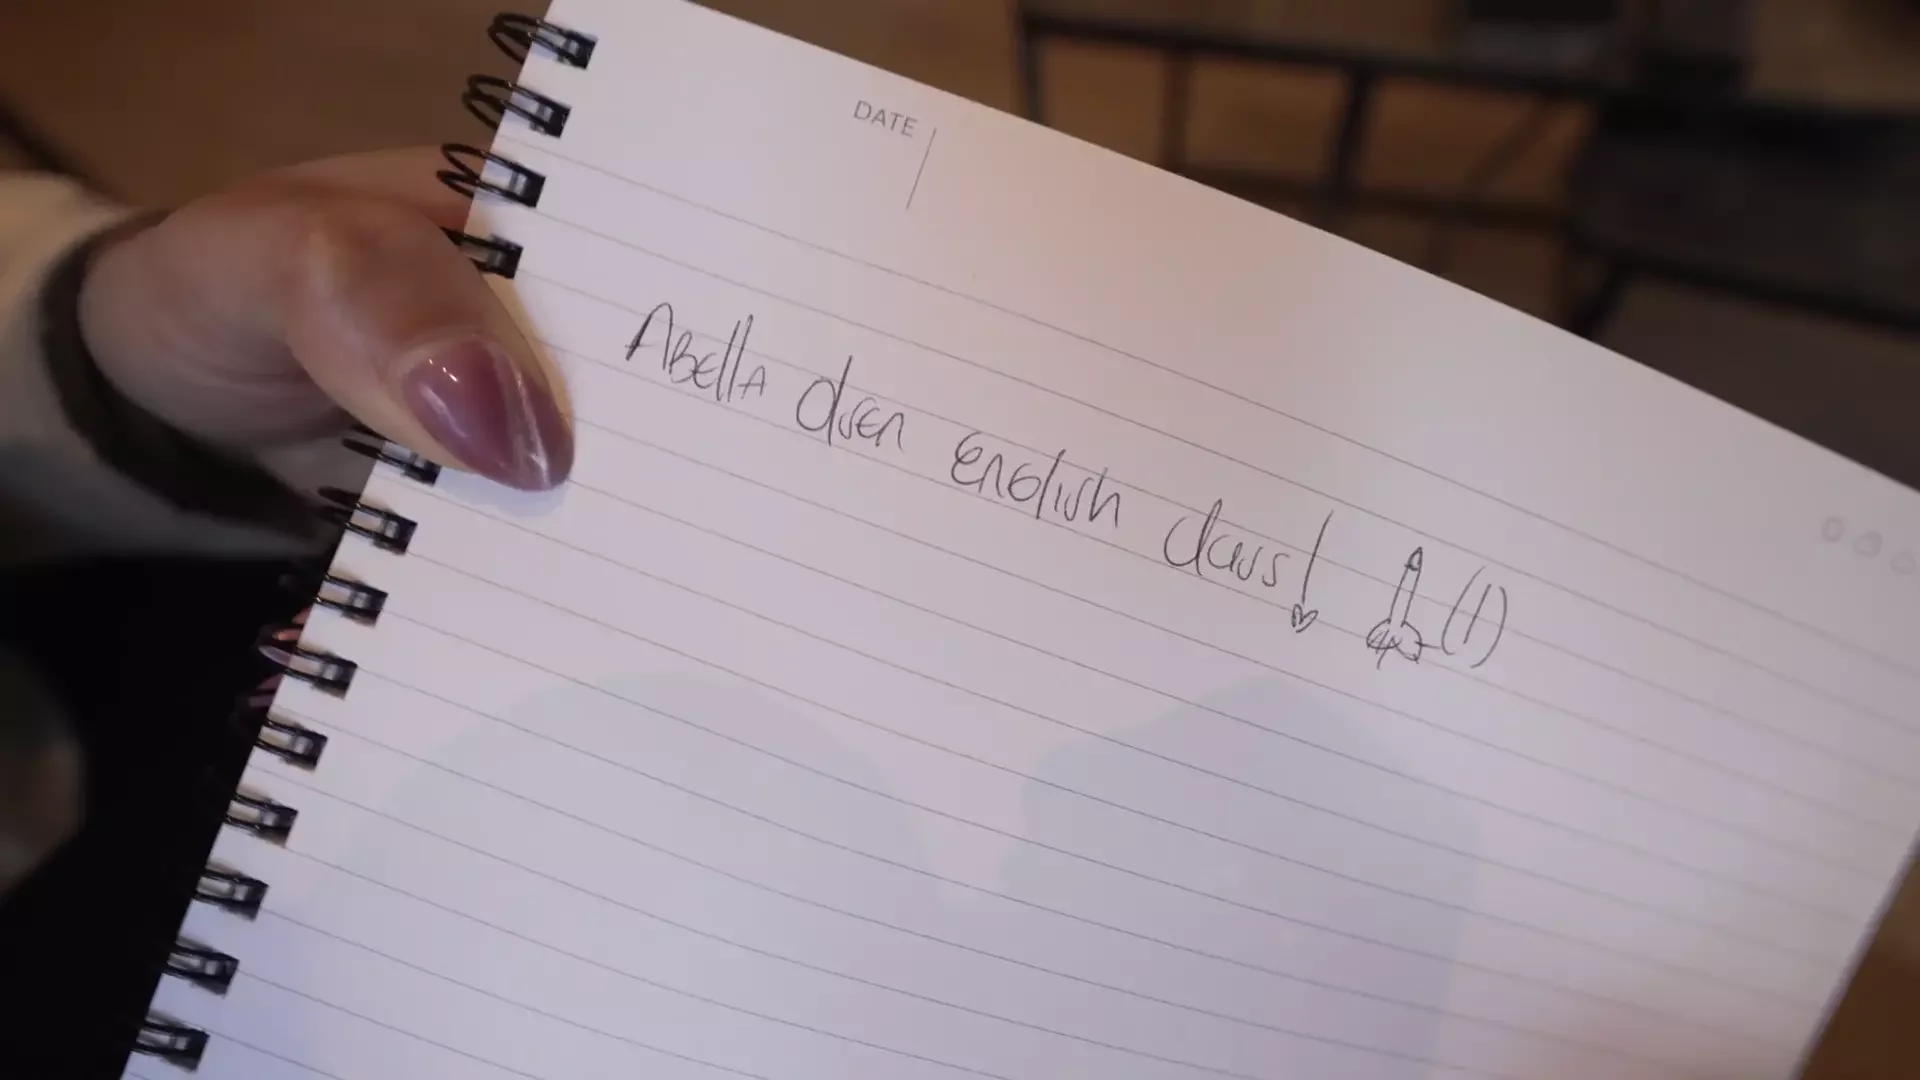 DATE
ABellA Olsen English class! (1)